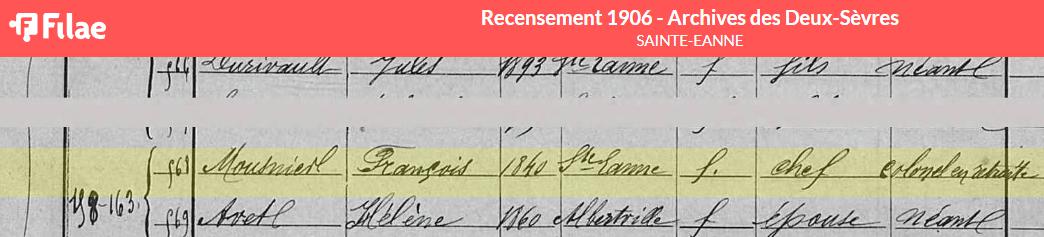 Filae
Recensement 1906 - Archives des Deux-Sèvres
SAINTE-EANNE
566 Durivault Jules 1893 Ste Eanne f fils néant
568 Mousnier François 1840 Ste Eanne f. chef colonel en retraite
158-163. 569 Avet Hélène 1860 Albertville f épouse néant